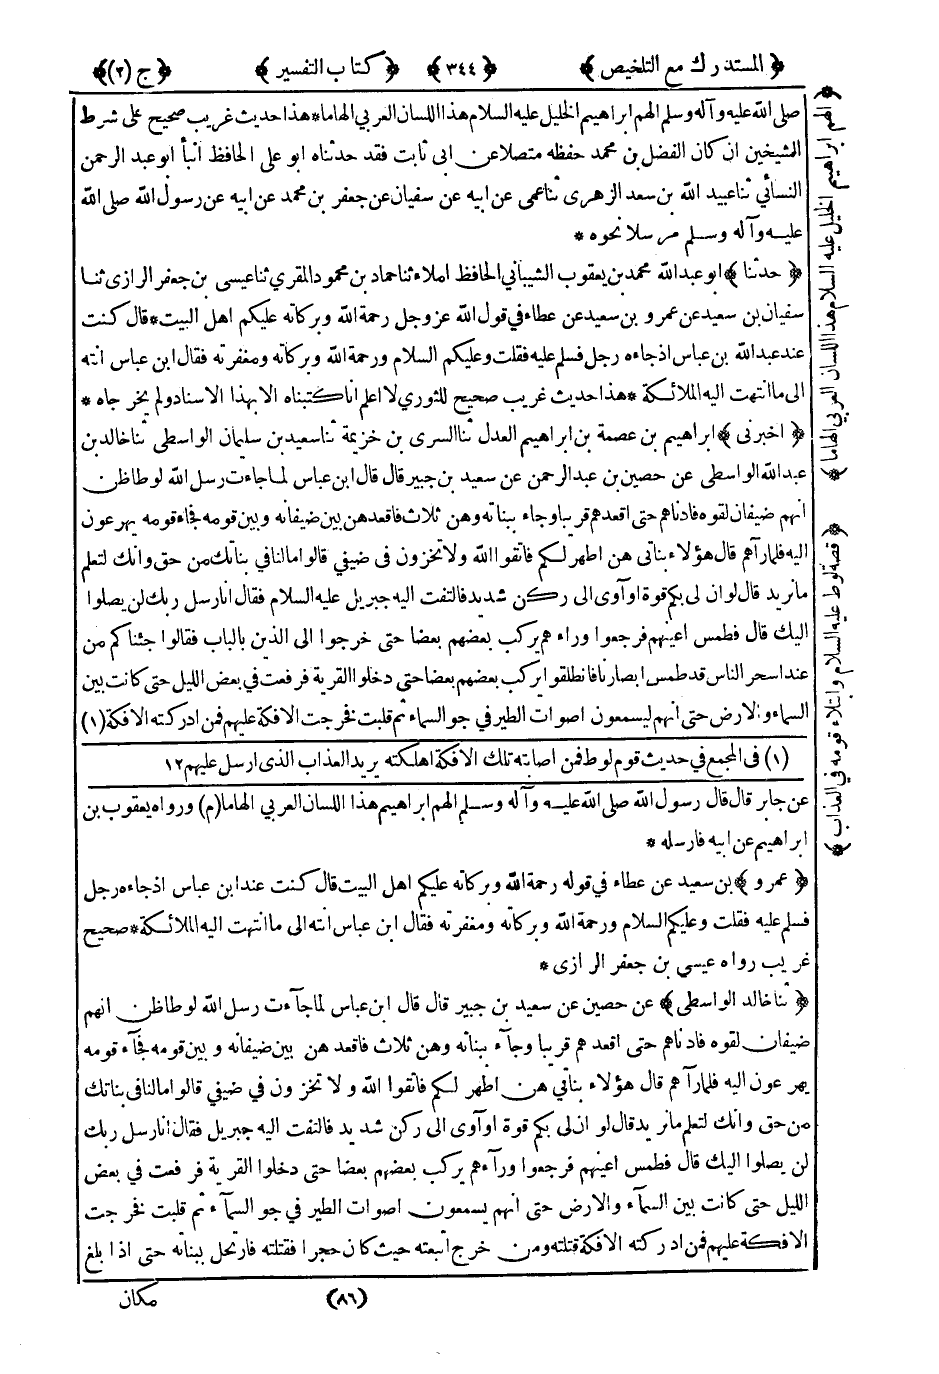 ﴿ المستدرك مع التلخيص ﴾ ﴿ ٣٤٤ ﴾ ﴿ كتاب التفسير ﴾ ﴿ ج (٢) ﴾
صلى الله عليه وآله وسلم الهم ابراهيم الخليل عليه السلام هذا اللسان العربي الهاما * هذا حديث غريب صحيح على شرط
الشيخين ان كان الفضل بن محمد حفظه متصلا عن ابى ثابت فقد حدثناه ابو على الحافظ انبأ ابو عبد الرحمن
النسائي ثنا عبيد الله بن سعد الزهرى ثنا عمى عن ابيه عن سفيان عن جعفر بن محمد عن ابيه عن رسول الله صلى الله
عليه وآله وسلم مرسلا نحوه *
﴿ حدثنا ﴾ ابو عبد الله محمد بن يعقوب الشيباني الحافظ املاء ثنا حماد بن محمود المقري ثنا عيسى بن جعفر الرازى ثنا
سفيان بن سعيد عن عمرو بن سعيد عن عطاء في قول الله عز وجل رحمة الله وبركاته عليكم اهل البيت * قال كنت
عند عبد الله بن عباس اذ جاءه رجل فسلم عليه فقلت وعليكم السلام ورحمة الله وبركاته ومغفرته فقال ابن عباس انته
الى ما انتهت اليه الملائكة * هذا حديث غريب صحيح للثوري لا اعلم انا كتبناه الا بهذا الاسناد ولم يخرجاه *
﴿ اخبرنى ﴾ ابراهيم بن عصمة بن ابراهيم العدل ثنا السرى بن خزيمة ثنا سعيد بن سليمان الواسطى ثنا خالد بن
عبد الله الواسطى عن حصين بن عبد الرحمن عن سعيد بن جبير قال قال ابن عباس لما جاءت رسل الله لوطا ظن
انهم ضيفان لقوه فادناهم حتى اقعدهم قريبا وجاء ببناته وهن ثلاث فاقعدهن بين ضيفانه وبين قومه فجاء قومه يهرعون
اليه فلما رآهم قال هؤلاء بناتى هن اطهر لكم فاتقوا الله ولا تخزون فى ضيفي قالوا مالنا في بناتك من حق وانك لتعلم
ما نريد قال لو ان لى بكم قوة او آوى الى ركن شديد فالتفت اليه جبريل عليه السلام فقال انا رسل ربك لن يصلوا
اليك قال فطمس اعينهم فرجعوا وراءهم يركب بعضهم بعضا حتى خرجوا الى الذين بالباب فقالوا جئناكم من
عند اسحر الناس قد طمس ابصارنا فانطلقوا يركب بعضهم بعضا حتى دخلوا القرية فرفعت في بعض الليل حتى كانت بين
السماء والارض حتى انهم ليسمعون اصوات الطير في جو السماء ثم قلبت فخرجت الافكة عليهم فمن ادركته الافكة (١)
(١) فى المجمع في حديث قوم لوط فمن اصابته تلك الافكة اهلكته يريد العذاب الذى ارسل عليهم ١٢
عن جابر قال قال رسول الله صلى الله عليه وآله وسلم الهم ابراهيم هذا اللسان العربي الهاما (م) ورواه يعقوب بن
ابراهيم عن ابيه فارسله *
﴿ عمرو ﴾ بن سعيد عن عطاء في قوله رحمة الله وبركاته عليكم اهل البيت قال كنت عند ابن عباس اذ جاءه رجل
فسلم عليه فقلت وعليكم السلام ورحمة الله وبركاته ومغفرته فقال ابن عباس انته الى ما انتهت اليه الملائكة * صحيح
غريب رواه عيسى بن جعفر الرازى *
﴿ ثنا خالد الواسطى ﴾ عن حصين عن سعيد بن جبير قال قال ابن عباس لما جآءت رسل الله لوطا ظن انهم
ضيفان لقوه فادناهم حتى اقعدهم قريبا وجآء ببناته وهن ثلاث فاقعدهن بين ضيفانه وبين قومه فجآء قومه
يهرعون اليه فلما رآهم قال هؤلاء بناتي هن اطهر لكم فاتقوا الله ولا تخزون في ضيفي قالوا مالنا فى بناتك
من حق وانك لتعلم ما نريد قال لو ان لى بكم قوة او آوى الى ركن شديد فالتفت اليه جبريل فقال انا رسل ربك
لن يصلوا اليك قال فطمس اعينهم فرجعوا ورآءهم يركب بعضهم بعضا حتى دخلوا القرية فرفعت في بعض
الليل حتى كانت بين السمآء والارض حتى انهم يسمعون اصوات الطير في جو السمآء ثم قلبت فخرجت
الافكة عليهم فمن ادركته الافكة قتلته ومن خرج اتبعته حيث كان حجرا فقتلته فارتحل ببناته حتى اذا بلغ
(٨٦) مكان
﴿ الهم ابراهيم الخليل عليه السلام هذا اللسان العربي الهاما ﴾
﴿ قصة لوط عليه السلام وابتلاء قومه في العذاب ﴾